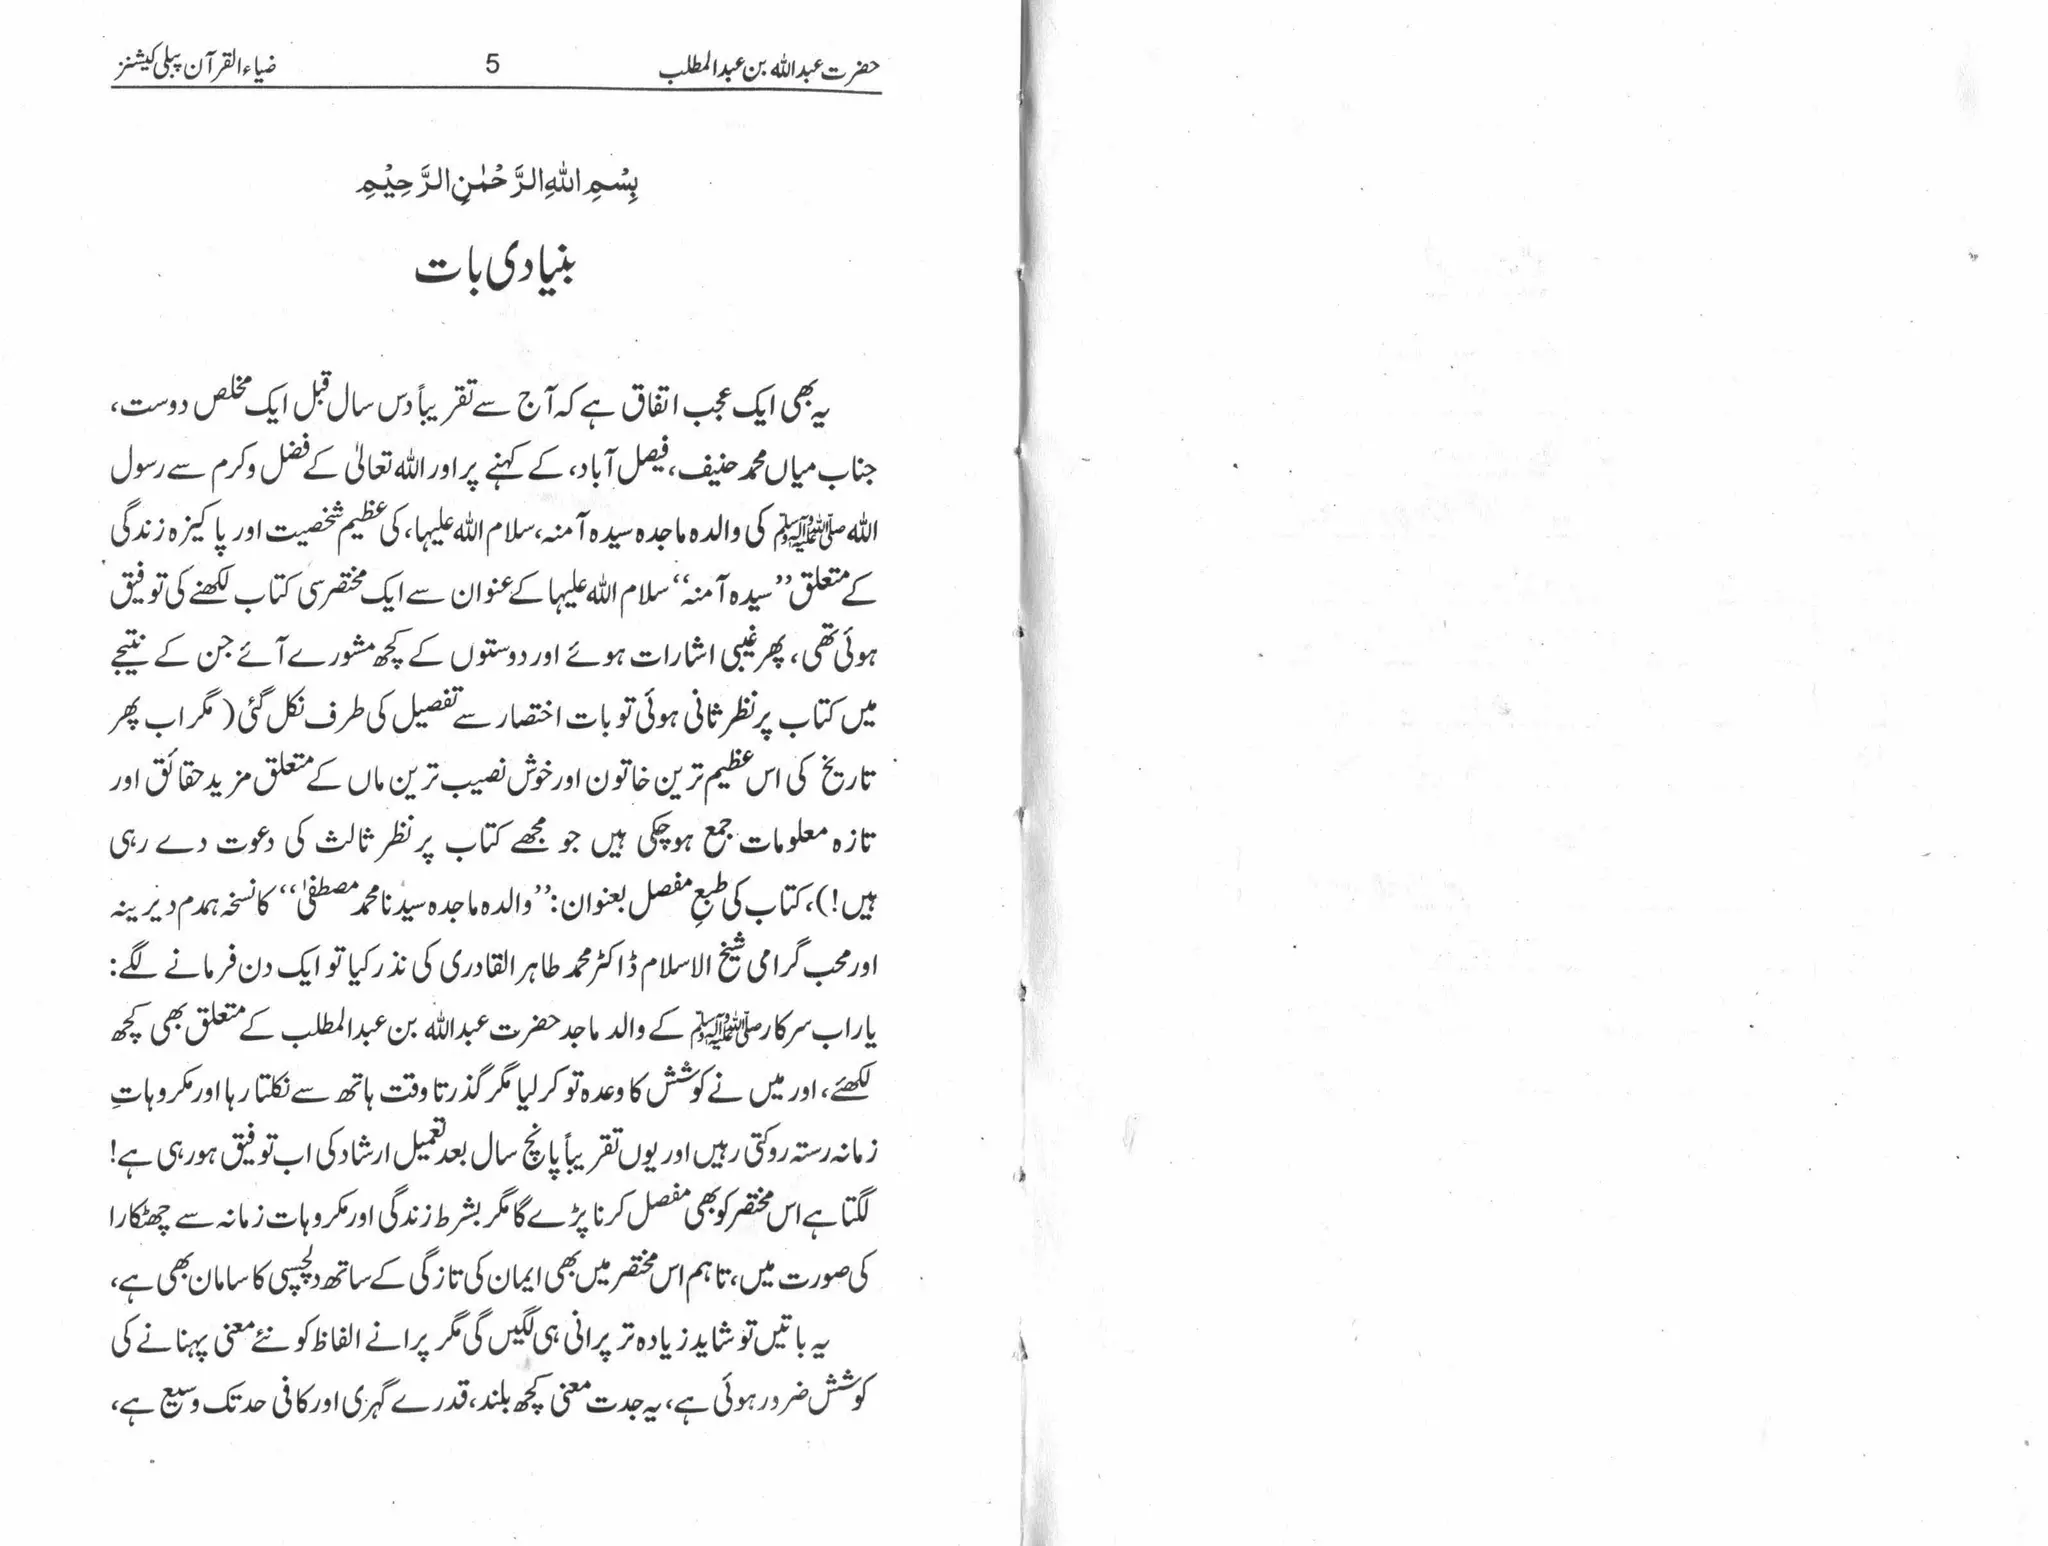 حضرت عبداللہ بن عبدالمطلب 5 ضیاء القرآن پبلی کیشنز
بِسْمِ اللّٰهِ الرَّحْمٰنِ الرَّحِيْمِ
بنیادی بات
یہ بھی ایک عجب اتفاق ہے کہ آج سے تقریباً دس سال قبل ایک مخلص دوست،
جناب میاں محمد حنیف، فیصل آباد، کے کہنے پر اور اللہ تعالیٰ کے فضل و کرم سے رسول
اللہ ﷺ کی والدہ ماجدہ سیدہ آمنہ، سلام اللہ علیہا، کی عظیم شخصیت اور پاکیزہ زندگی
کے متعلق ’’سیدہ آمنہ‘‘ سلام اللہ علیہا کے عنوان سے ایک مختصر سی کتاب لکھنے کی توفیق
ہوئی تھی، پھر غیبی اشارات ہوئے اور دوستوں کے کچھ مشورے آئے جن کے نتیجے
میں کتاب پر نظر ثانی ہوئی تو بات اختصار سے تفصیل کی طرف نکل گئی (مگر اب پھر
تاریخ کی اس عظیم ترین خاتون اور خوش نصیب ترین ماں کے متعلق مزید حقائق اور
تازہ معلومات جمع ہوچکی ہیں جو مجھے کتاب پر نظر ثالث کی دعوت دے رہی
ہیں!)، کتاب کی طبعِ مفصل بعنوان: ’’والدہ ماجدہ سیدنا محمد مصطفیٰ‘‘ کا نسخہ ہمدم دیرینہ
اور محب گرامی شیخ الاسلام ڈاکٹر محمد طاہر القادری کی نذر کیا تو ایک دن فرمانے لگے:
یار اب سرکار ﷺ کے والد ماجد حضرت عبداللہ بن عبدالمطلب کے متعلق بھی کچھ
لکھئے، اور میں نے کوشش کا وعدہ تو کر لیا مگر گذرتا وقت ہاتھ سے نکلتا رہا اور مکروہاتِ
زمانہ رستہ روکتی رہیں اور یوں تقریباً پانچ سال بعد تعمیل ارشاد کی اب توفیق ہو رہی ہے!
لگتا ہے اس مختصر کو بھی مفصل کرنا پڑے گا مگر بشرط زندگی اور مکروہات زمانہ سے چھٹکارا
کی صورت میں، تاہم اس مختصر میں بھی ایمان کی تازگی کے ساتھ دلچسپی کا سامان بھی ہے،
یہ باتیں تو شاید زیادہ تر پرانی ہی لگیں گی مگر پرانے الفاظ کو نئے معنی پہنانے کی
کوشش ضرور ہوئی ہے، یہ جدت معنی کچھ بلند، قدرے گہری اور کافی حد تک وسیع ہے،